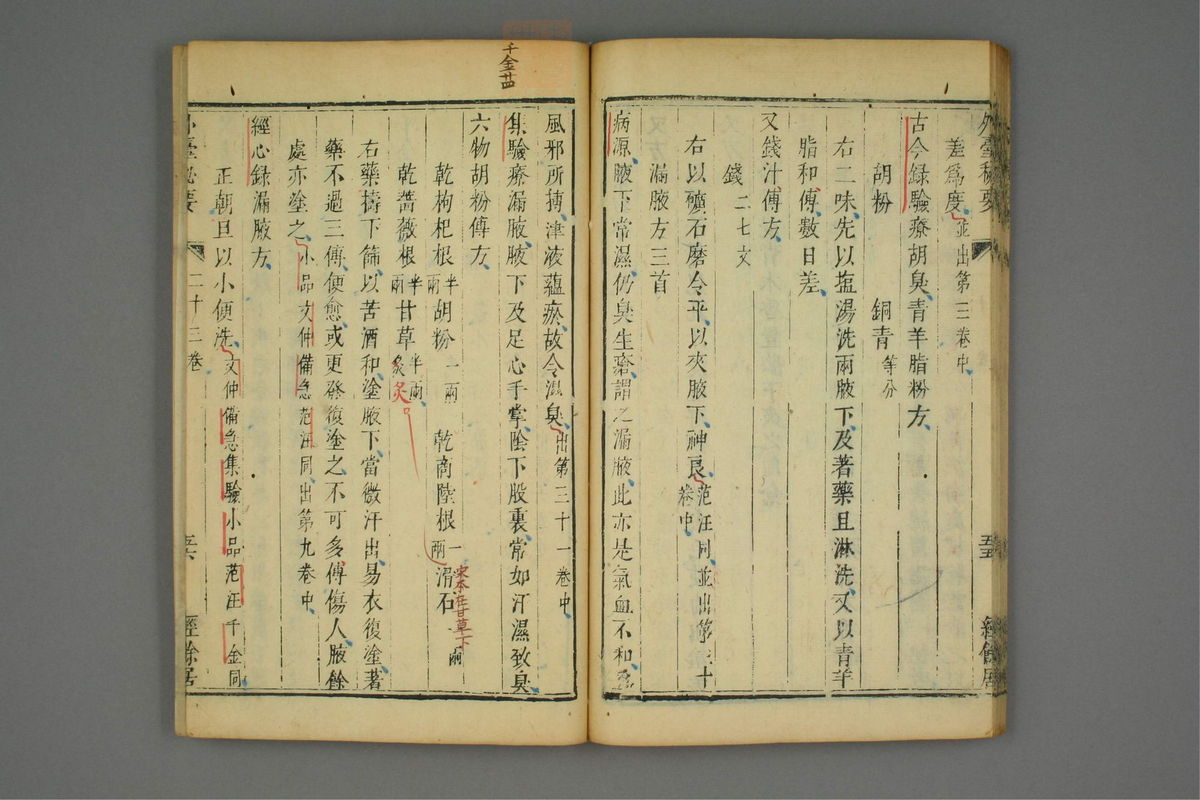 外臺秘要
差爲度並出第三卷中
古今録驗療胡臭青羊脂粉方
胡粉 銅青等分
右二味先以塩湯洗兩腋下及著藥且淋洗又以青羊
脂和傅數日差
又錢汁傅方
錢二七文
右以礪石磨令平以夾腋下神良范汪同並出第三十
卷中
漏腋方三首
病源腋下常濕仍臭生瘡謂之漏腋此亦是氣血不和爲
千金廿四
風邪所搏津液蘊瘀故令濕臭出第三十一卷中
集驗療漏腋腋下及足心手掌陰下股裏常如汗濕致臭
六物胡粉傅方
乾枸杞根半兩 胡粉一兩 乾商陸根一兩 滑石一兩
宋本在甘草下
乾薔薇根半兩 甘草半兩炙
炙
右藥擣下篩以苦酒和塗腋下當微汗出易衣復塗著
藥不過三傅便愈或更發復塗之不可多傅傷人腋餘
處亦塗之小品文仲備急范汪同出第九卷中
經心録漏腋方
正朝旦以小便洗文仲備急集驗小品范汪千金同
外臺秘要 二十三卷 經餘居